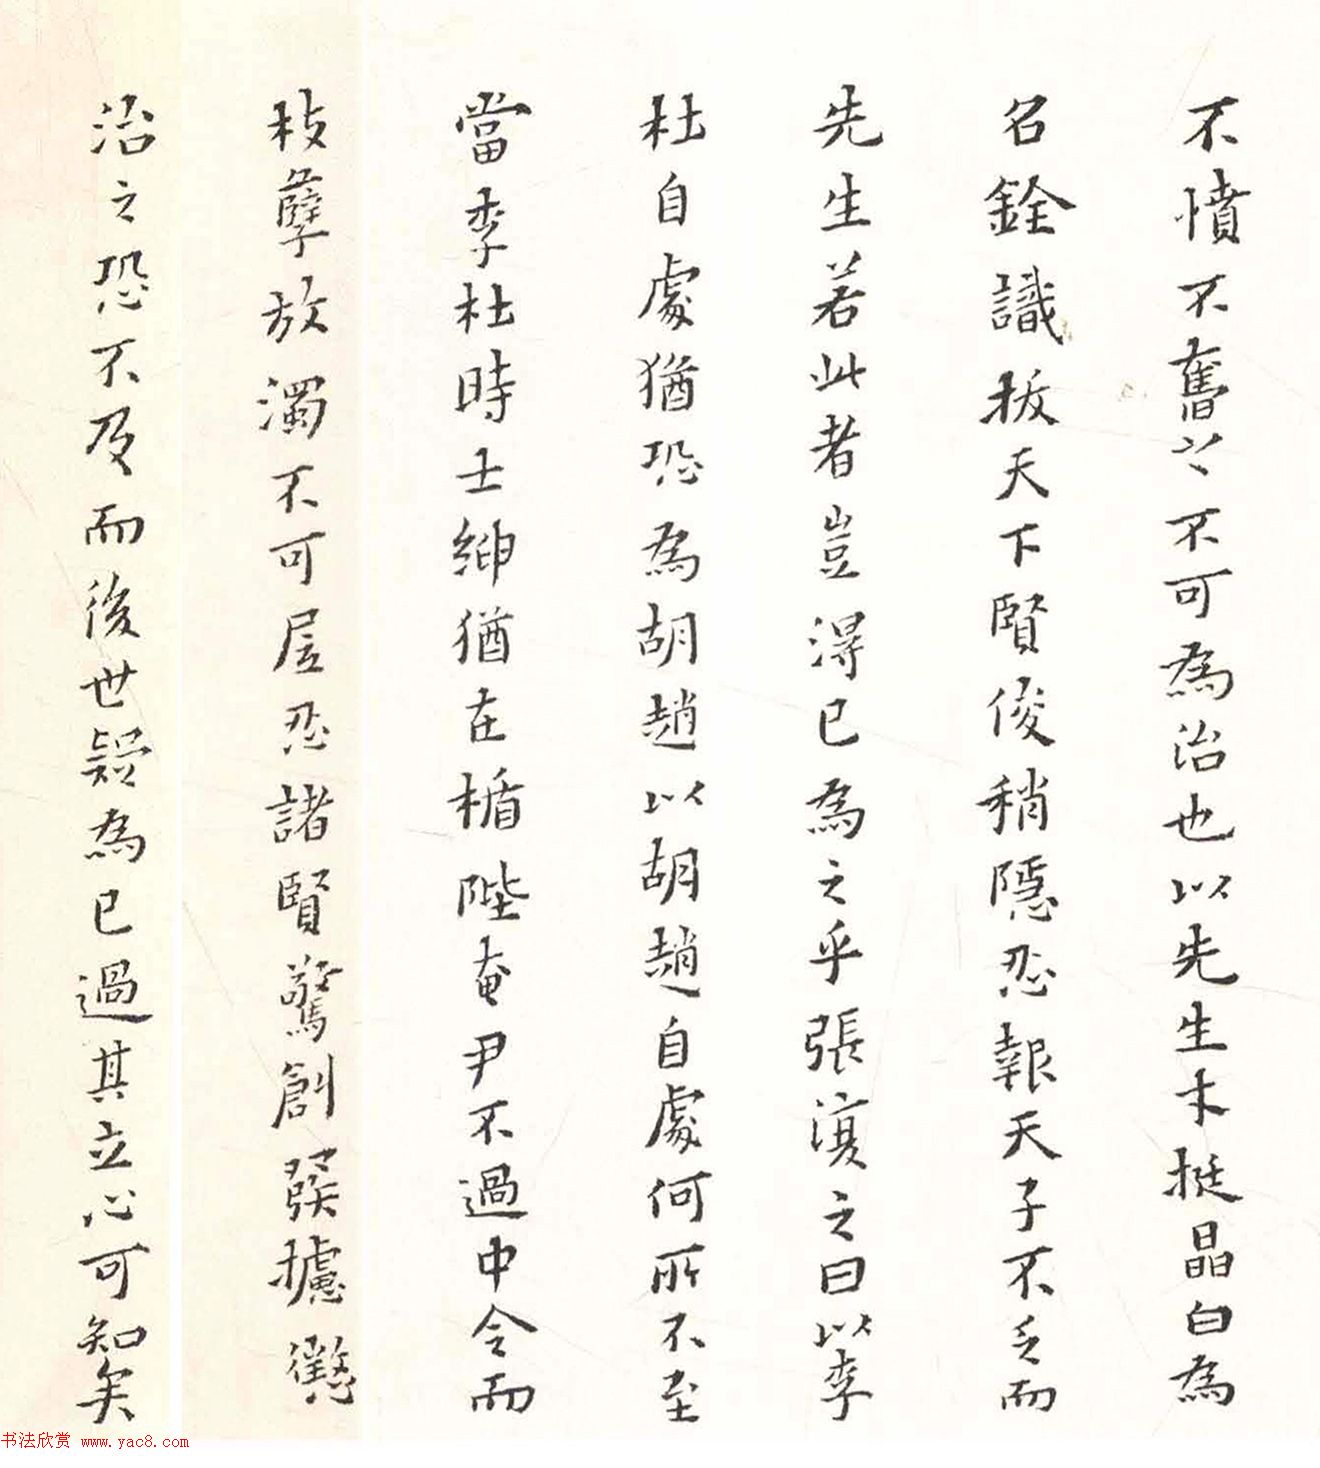 不憤不奮〻不可為治也以先生木挺晶白為
名銓識拔天下賢俊稍隱忍報天子不乏而
先生若此者豈得已為之乎張湏之曰以李
杜自處猶恐為胡趙以胡趙自處何所不至
當李杜時士紳猶在楯陛奄尹不過中令而
枝孽放濁不可層忍諸賢驚創發攄懲
治之恐不及而後世疑為已過其立心可知矣
书法欣赏 www.yac8.com